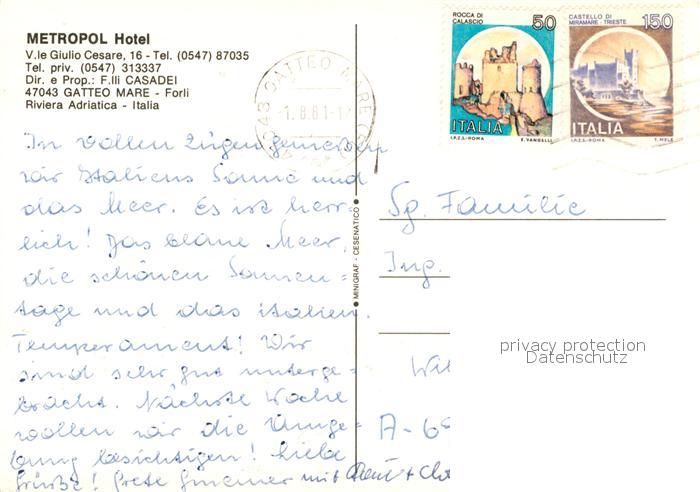 METROPOL Hotel
V.le Giulio Cesare, 16 - Tel. (0547) 87035
Tel. priv. (0547) 313337
Dir. e Prop.: F.lli CASADEI
47043 GATTEO MARE - Forli
Riviera Adriatica - Italia
GATTEO MARE
-1.8.81-1
ROCCA DI
CALASCIO
50
ITALIA
I.P.Z.S.-ROMA E. VANGELLI
CASTELLO DI
MIRAMARE - TRIESTE
150
ITALIA
I.P.Z.S.-ROMA T. MELE
In vollen Zügen geniessen
wir Italiens Sonne und
das Meer. Es ist herr-
lich! Das blaue Meer,
die schönen Sonnen=
tage und das italien.
Temperament! Wir
sind sehr gut unterge=
bracht. Nächste Woche
wollen wir die Umge=
bung besichtigen! Liebe
Grüße! Grete mit
MINIGRAF - CESENATICO
Sg. Familie
Ing.
Wil
A-6
privacy protection
Datenschutz